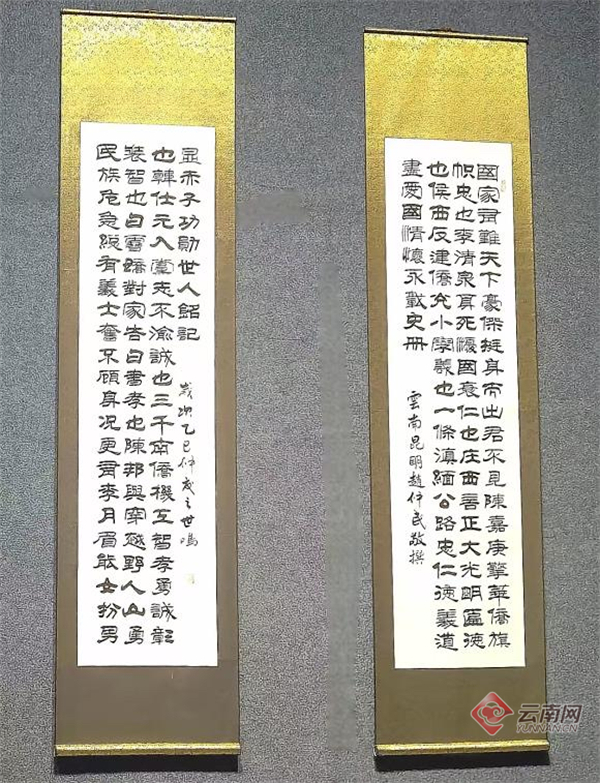 國家有難天下豪傑挺身而出君不見陳嘉庚擎華僑旗
帜忠也李清泉死憂國哀仁也庄西言正大光明匾德
也侯西反建僑光小學義也一條滇緬公路忠仁德義道
盡愛國情懷永載史册
雲南昆明趙仲武敬撰
民族危急總有義士奮不顧身况更有李月眉能女扮男
裝智也白雪嬌對家告白書孝也陳邦興穿越野人山勇
也韓仕元入黨志不渝誠也三千南僑機工智孝勇誠彰
显赤子功勛世人銘記
歲次乙巳仲夏之世鳴
云南网
YUNNAN.CN